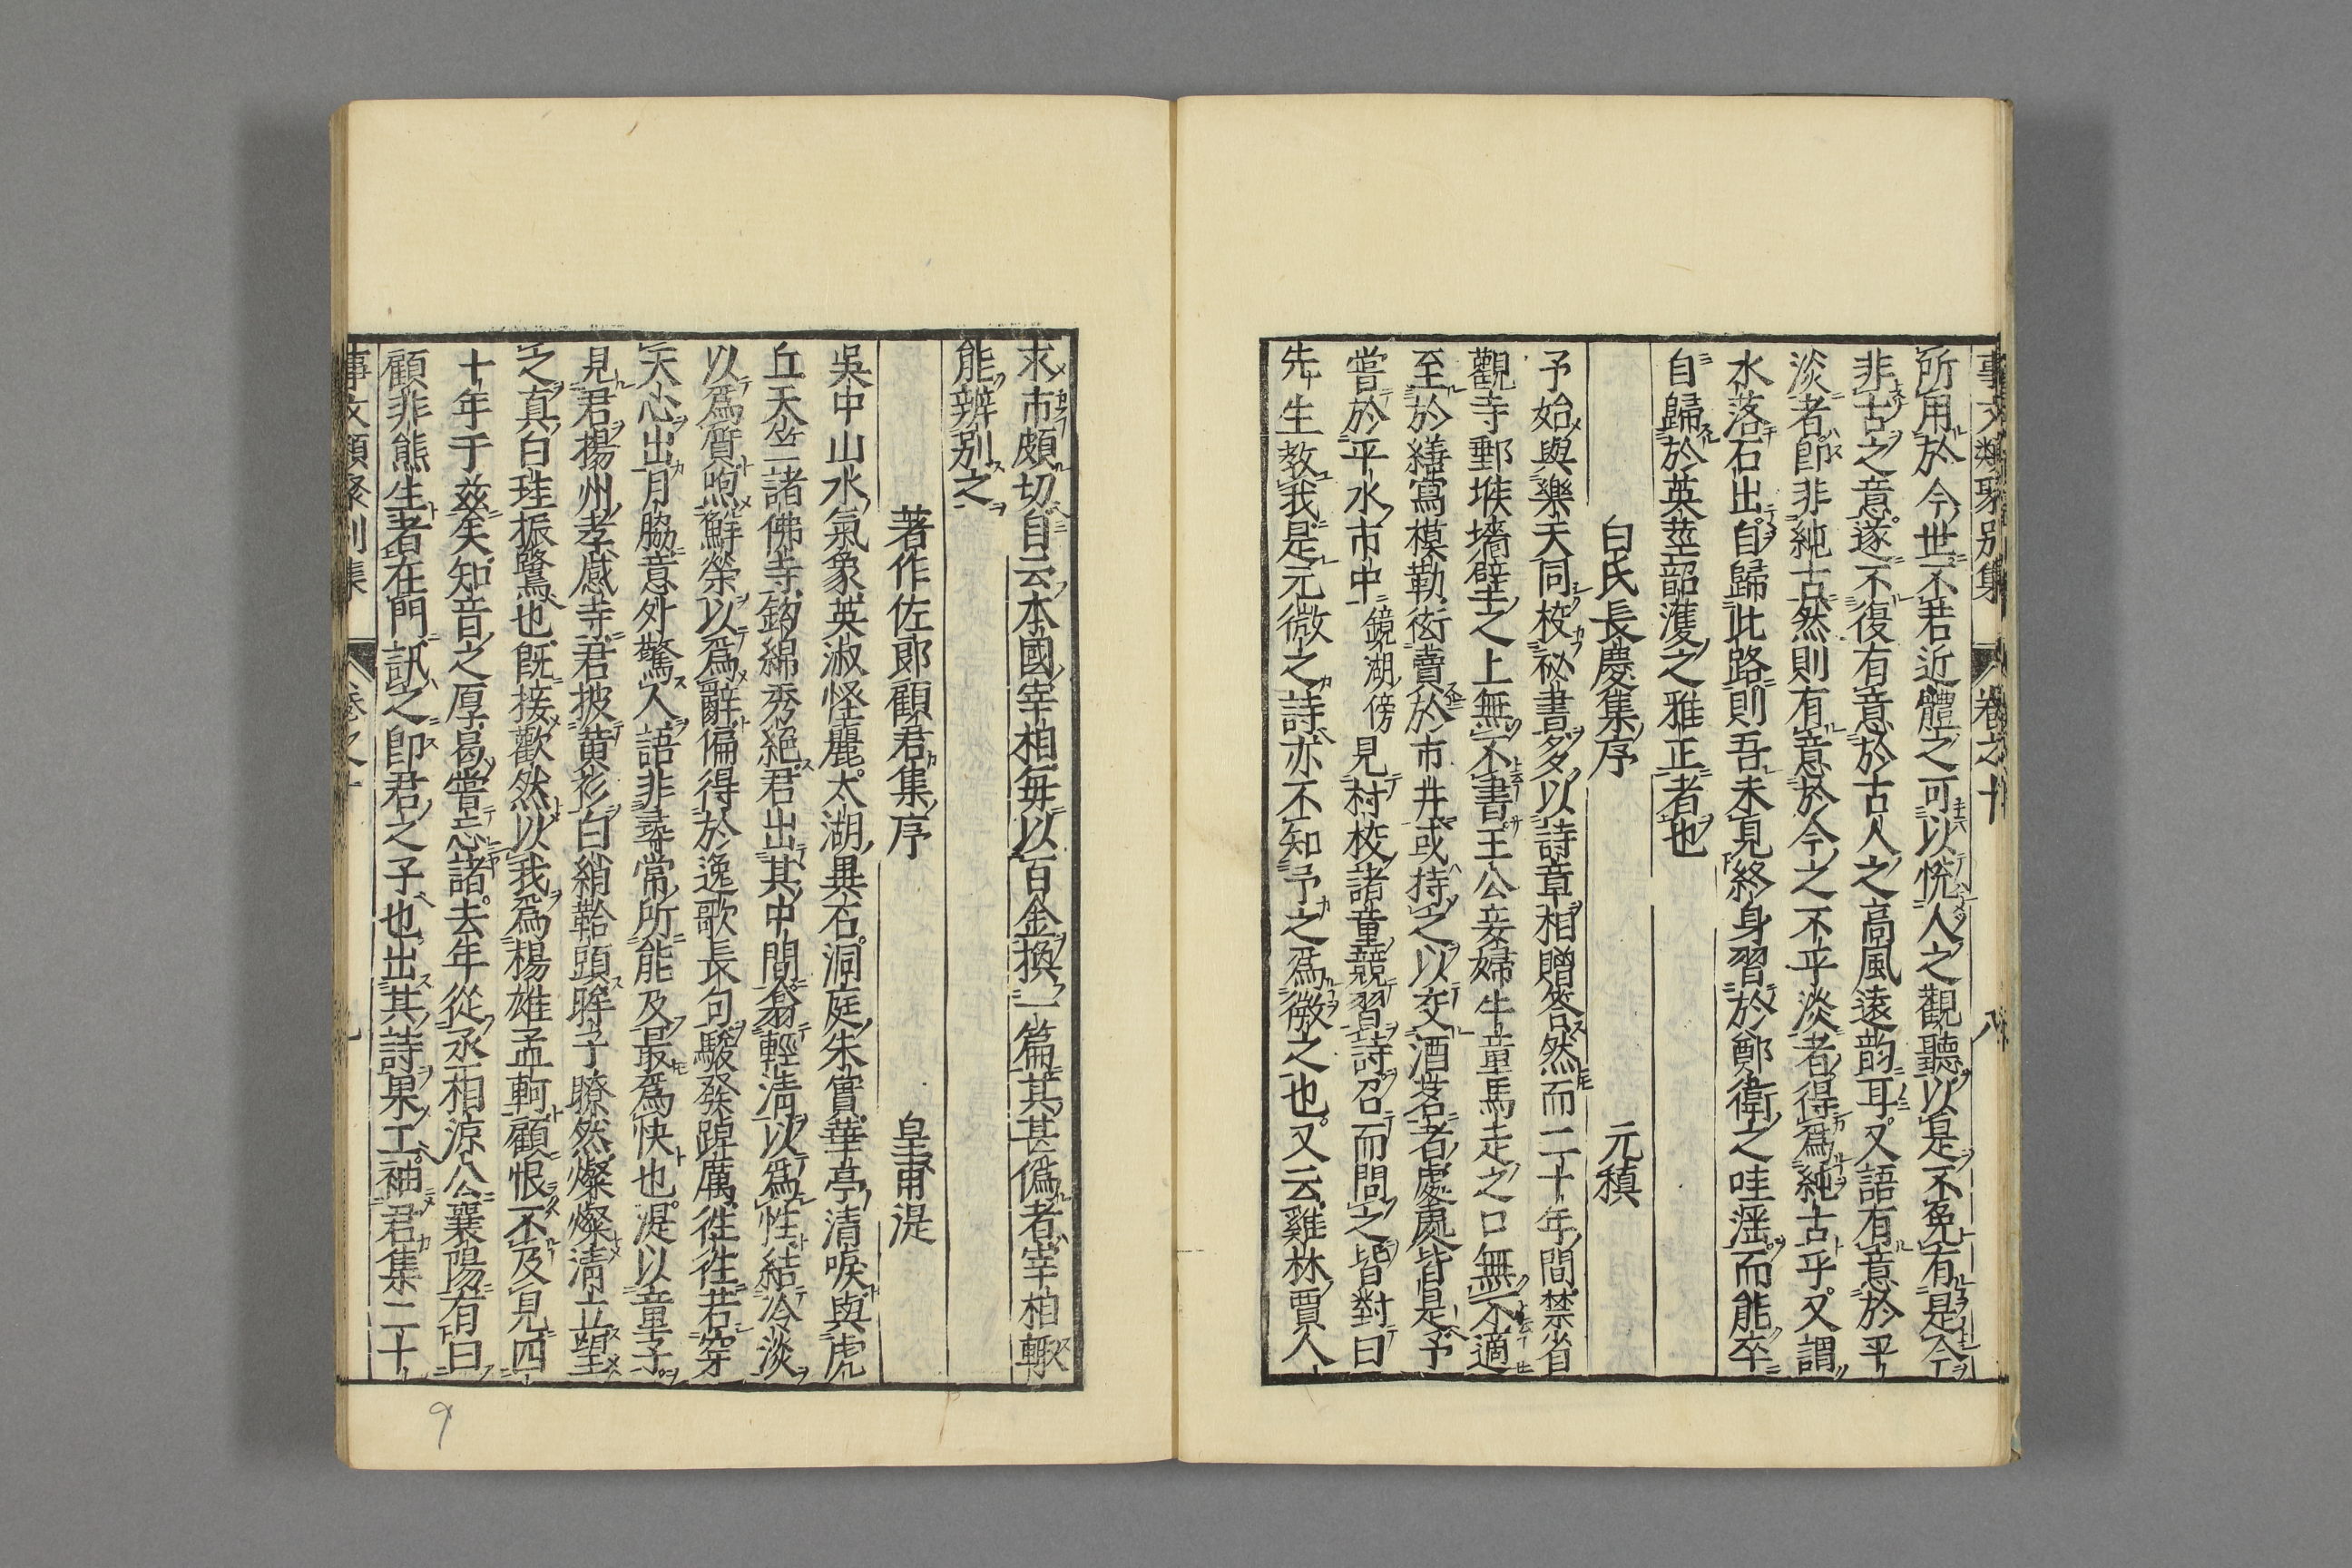 事文類聚別集 卷之十 八
所用於今世不若近體之可以恱人之觀聽以是不免有是今
非古之意遂不復有意於古人之高風遠韵耳又語有意於平
淡者即非純古然則有意於今之不平淡者得爲純古乎又謂
水落石出自歸此路則吾未見終身習於鄭衛之哇滛而能卒
自歸於英莖韶濩之雅正者也
白氏長慶集序 元稹
予始與樂天同校祕書多以詩章相贈答然而二十年間禁省
觀寺郵堠墻壁之上無不書王公妾婦牛童馬走之口無不適
至於繕寫模勒衒賣於市井或持之以交酒茗者處處皆是予
嘗於平水市中鏡湖傍見村校諸童競習詩召而問之皆對曰
先生教我是元微之詩亦不知予之爲微之也又云雞林賈人
求市頗切自云本國宰相每以百金換一篇其甚僞者宰相輙
能辨别之
著作佐郎顧君集序 皇甫湜
吳中山水氣象英淑怪麗太湖異石洞庭朱實華亭清唳與虎
丘天竺諸佛寺鈎綿秀絕君出其中間翕輕清以爲性結冷淡
以爲質煦鮮榮以爲辭偏得於逸歌長句駿發踔厲徃徃若穿
天心出月脇意外驚人語非尋常所能及最爲快也湜以童子
見君揚州孝感寺君披黄衫白絹鞈頭眸子瞭然燦燦清立望
之真白珪振鷺也既接歡然以我爲楊雄孟軻顧恨不及見四
十年于兹矣知音之厚曷嘗忘諸去年從丞相凉公襄陽有曰
顧非熊生者在門訊之即君之子也出其詩果工袖君集二十
事文類聚別集 卷之十 九
9